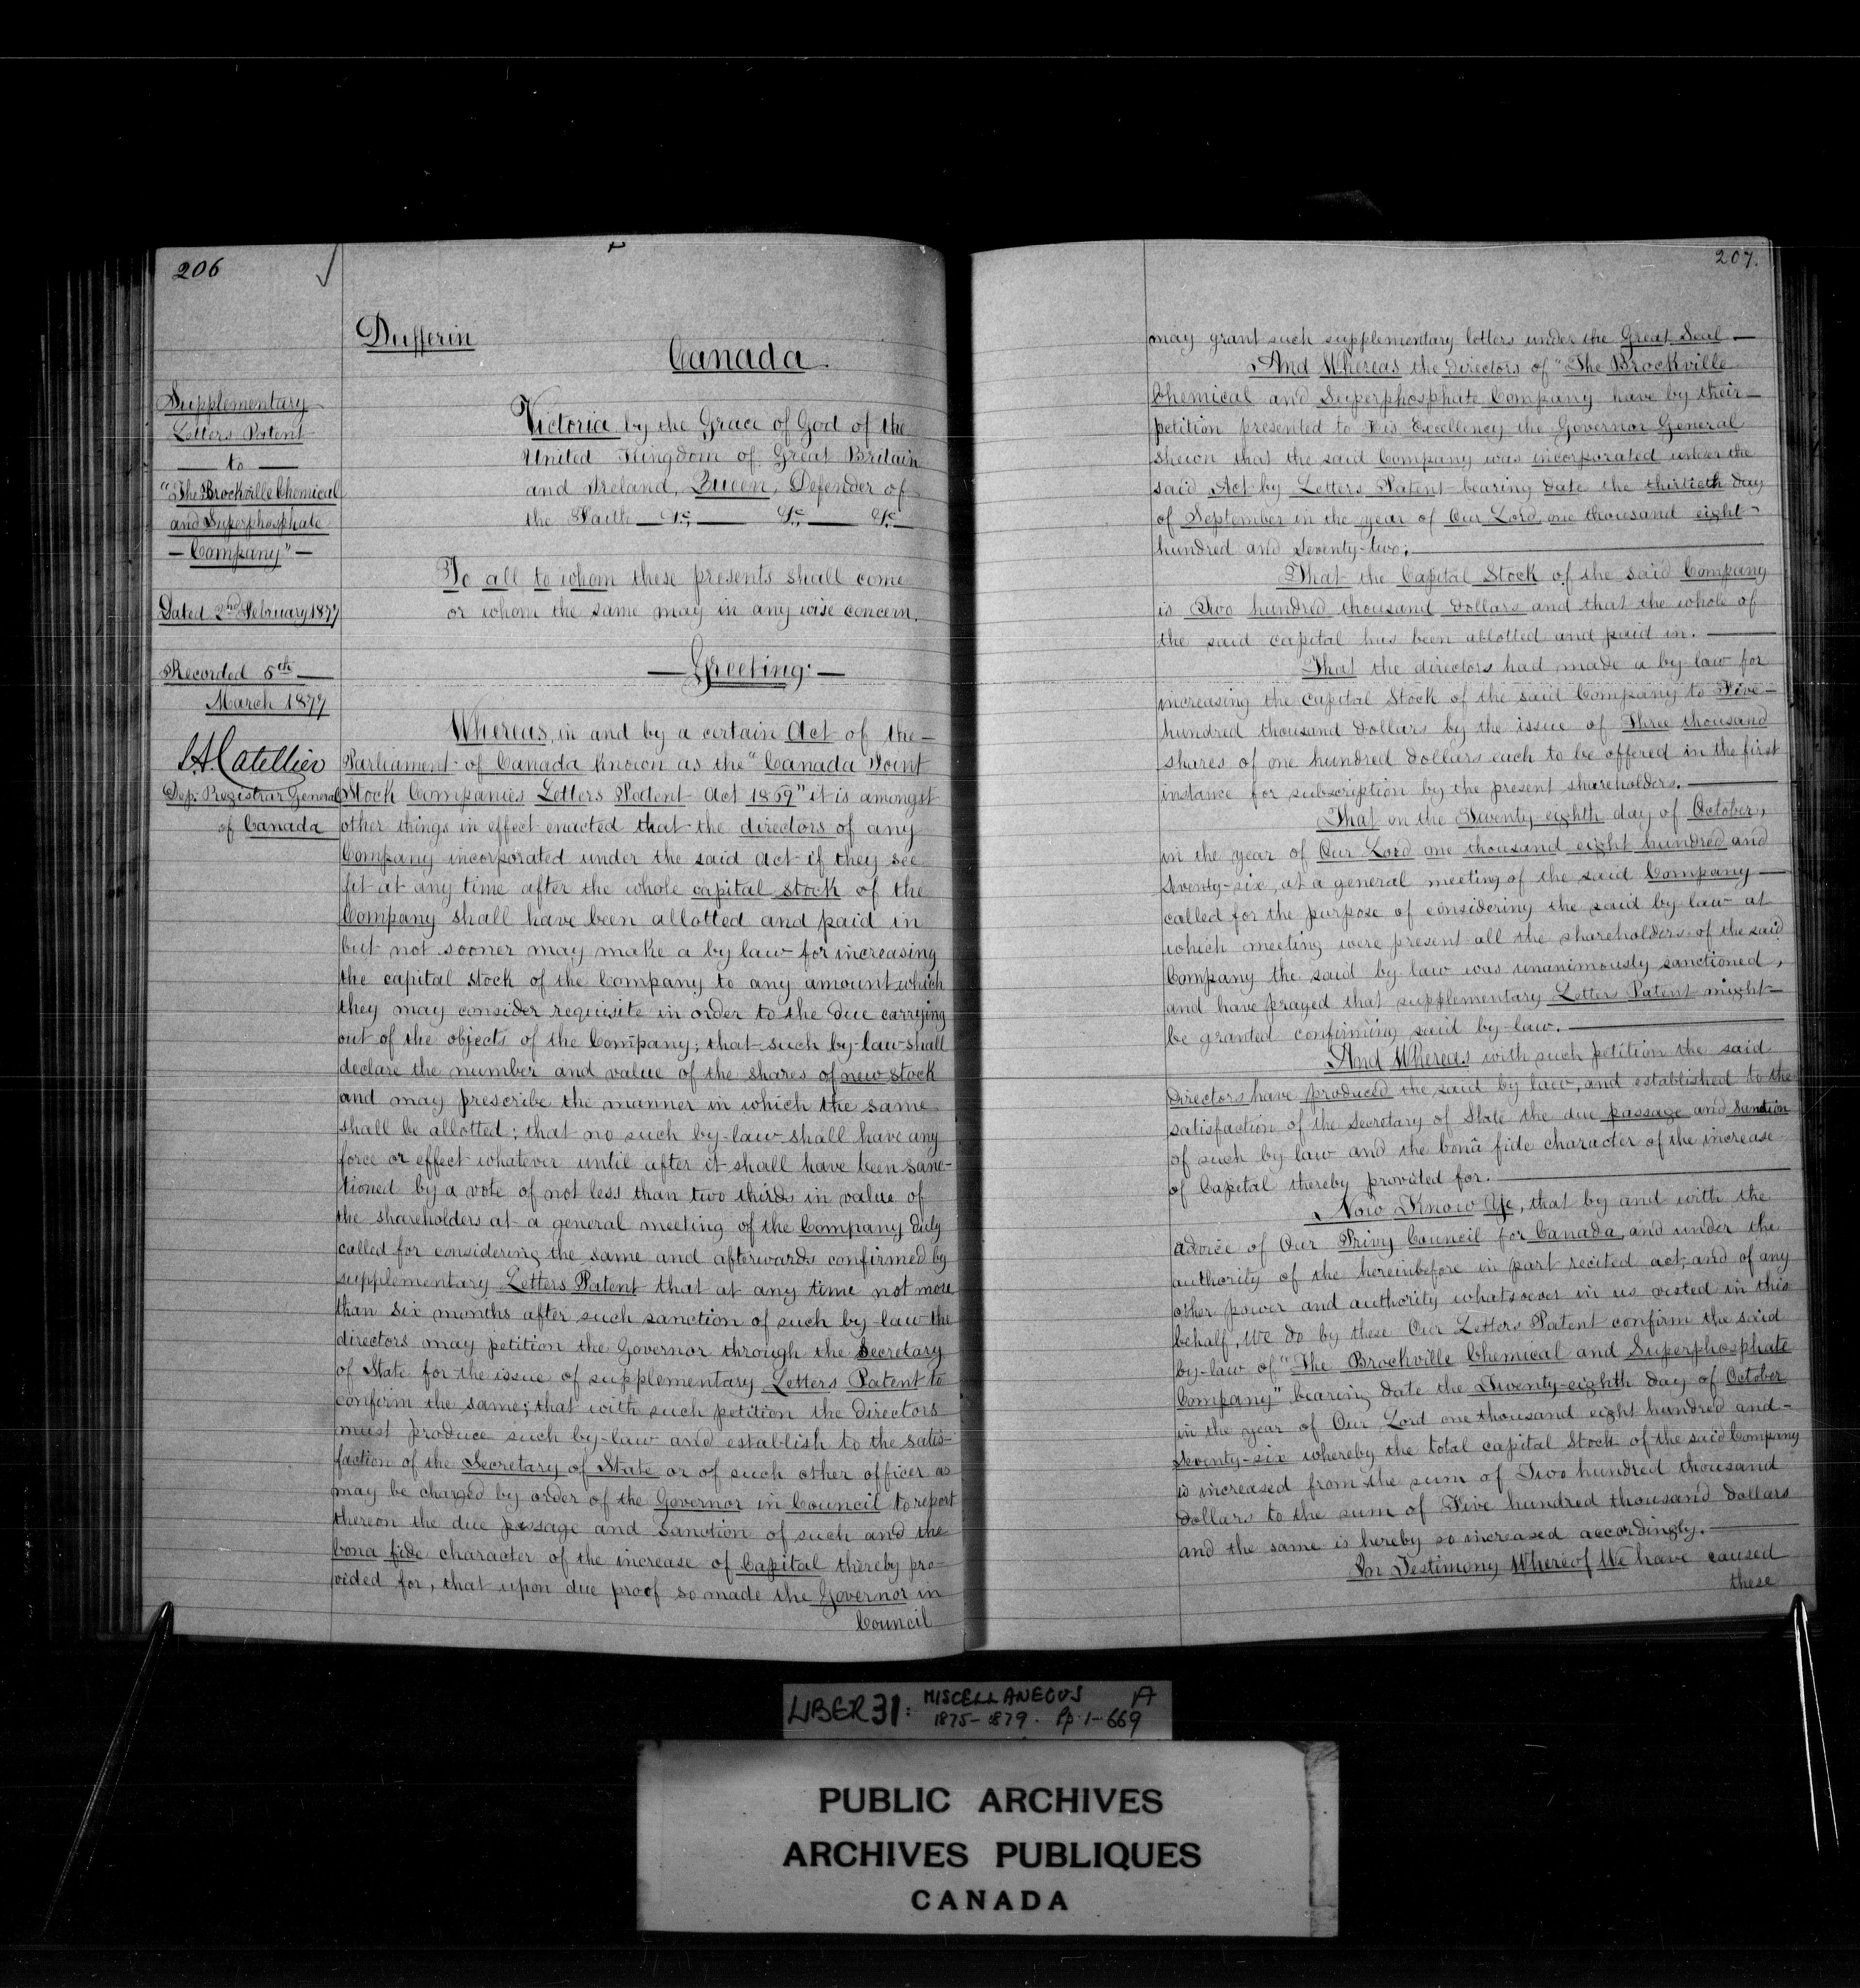 206
Dufferin
Canada
Supplementary
Letters Patent
to
"The Brockville Chemical
and Superphosphate
Company"
Dated 2nd February 1877
Recorded 5th
March 1877
Dep. Registrar General
of Canada
Victoria by the Grace of God of the
United Kingdom of Great Britain
and Ireland, Queen, Defender of
the Faith &c &c &c
To all to whom these presents shall come
or whom the same may in any wise concern.
Greeting:
Whereas, in and by a certain Act of the
Parliament of Canada known as the "Canada Joint
Stock Companies Letters Patent Act 1869" it is amongst
other things in effect enacted that the directors of any
Company incorporated under the said Act if they see
fit at any time after the whole capital stock of the
Company shall have been allotted and paid in
but not sooner may make a by law for increasing
the capital stock of the Company to any amount which
they may consider requisite in order to the due carrying
out of the objects of the Company; that such by-law shall
declare the number and value of the shares of new stock
and may prescribe the manner in which the same
shall be allotted; that no such by-law shall have any
force or effect whatever until after it shall have been sanc-
tioned by a vote of not less than two thirds in value of
the shareholders at a general meeting of the Company duly
called for considering the same and afterwards confirmed by
supplementary Letters Patent that at any time not more
than six months after such sanction of such by-law the
directors may petition the Governor through the Secretary
of State for the issue of supplementary Letters Patent to
confirm the same; that with such petition the directors
must produce such by-law and establish to the satis-
faction of the Secretary of State or of such other officer as
may be charged by order of the Governor in Council to report
thereon the due passage and sanction of such and the
bona fide character of the increase of Capital thereby pro-
vided for, that upon due proof so made the Governor in
Council
207.
may grant such supplementary letters under the Great Seal
And Whereas the directors of "The Brockville
Chemical and Superphosphate Company have by their
petition presented to His Excellency the Governor General
shewn that the said Company was incorporated under the
said Act by Letters Patent bearing date the thirtieth day
of September in the year of Our Lord one thousand eight
hundred and seventy-two;
That the Capital Stock of the said Company
is Two hundred thousand dollars and that the whole of
the said capital has been allotted and paid in.
That the directors had made a by-law for
increasing the capital stock of the said Company to Five
hundred thousand dollars by the issue of Three thousand
shares of one hundred dollars each to be offered in the first
instance for subscription by the present shareholders.
That on the Twenty-eighth day of October,
in the year of Our Lord one thousand eight hundred and
seventy-six, at a general meeting of the said Company
called for the purpose of considering the said by law at
which meeting were present all the shareholders of the said
Company the said by law was unanimously sanctioned,
and have prayed that supplementary Letters Patent might
be granted confirming said by-law.
And Whereas with such petition the said
Directors have produced the said by law, and established to the
satisfaction of the Secretary of State the due passage and sanction
of such by law and the bonâ fide character of the increase
of Capital thereby provided for.
Now Know Ye, that by and with the
advice of Our Privy Council for Canada, and under the
authority of the hereinbefore in part recited act, and of any
other power and authority whatsoever in us vested in this
behalf, We do by these Our Letters Patent confirm the said
by-law of "The Brockville Chemical and Superphosphate
Company" bearing date the Twenty-eighth day of October
in the year of Our Lord one thousand eight hundred and
seventy-six whereby the total capital stock of the said Company
is increased from the sum of Two hundred thousand
dollars to the sum of Five hundred thousand dollars
and the same is hereby so increased accordingly.
In Testimony Whereof We have caused
these
LIBER 31: MISCELLANEOUS
1875-1879. Pp. 1-669
PUBLIC ARCHIVES
ARCHIVES PUBLIQUES
CANADA